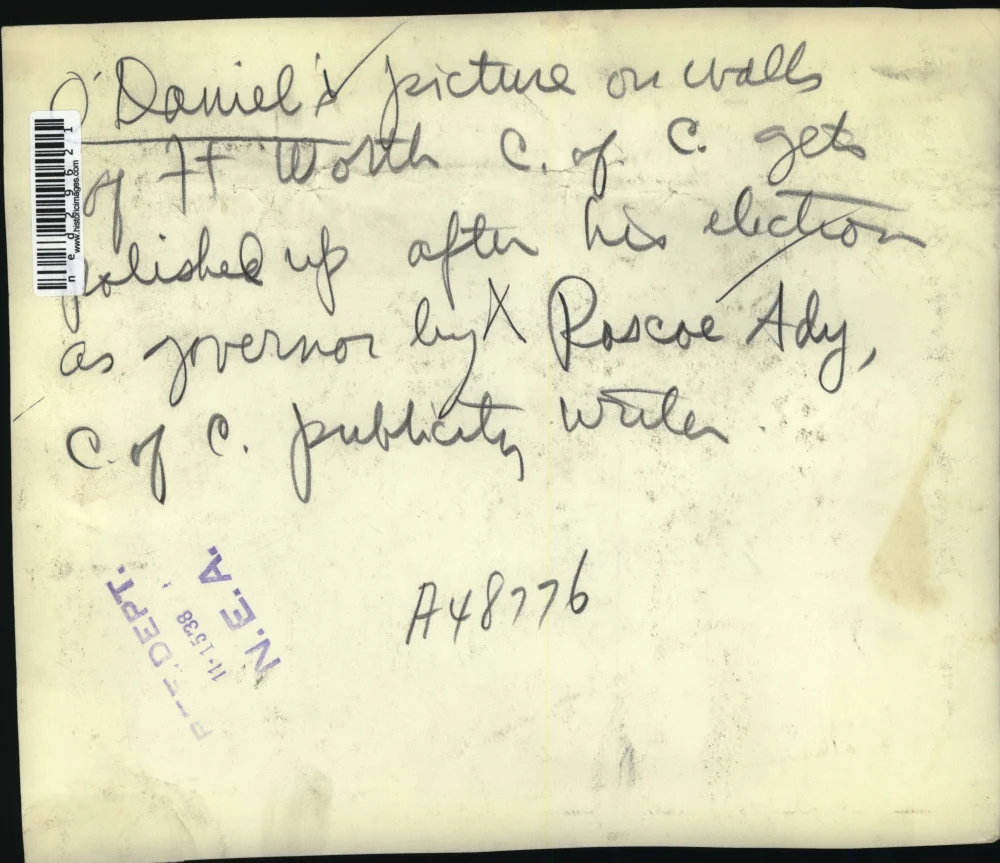 O'Daniel's picture on walls
of Ft Worth C. of C. gets
polished up after his election
as governor by X Roscoe Ady,
C. of C. publicity writer
A48776
DEPT.
11-15 38
N.E.A.
ned29621
www.historicimages.com